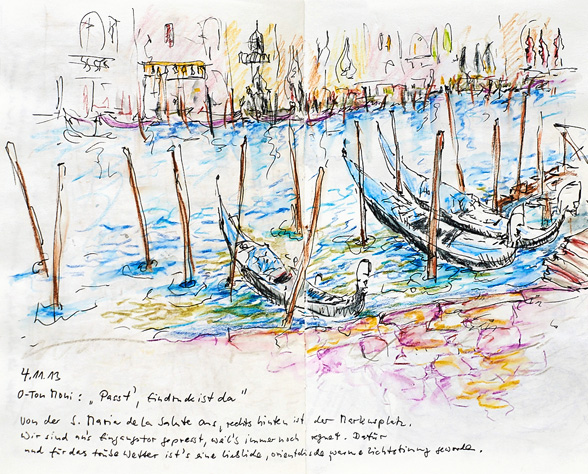 4.11.13
O-Ton Moni: „Passt, Eindruck ist da"
Von der S. Maria de la Salute aus, rechts hinten ist der Markusplatz.
Wir sind ans Eingangstor gepresst, weil's immer noch regnet. Dafür
und für das trübe Wetter ist's eine liebliche, orientalische warme Lichtstimmung geworden.